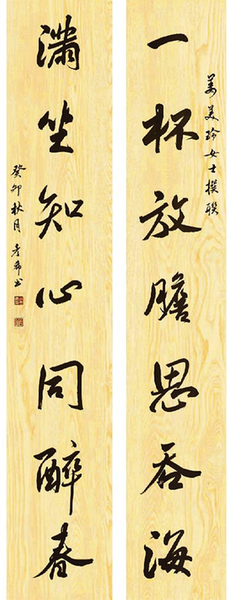 姜美玲女士撰联
一杯放胆思吞海
满坐知心同醉春
癸卯秋月孝希书